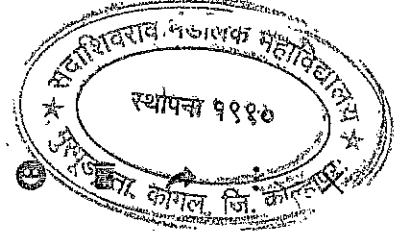 सदाशिवराव मंडलिक महाविद्यालय
स्थापना १९९०
ता. कागल, जि. कोल्हापूर